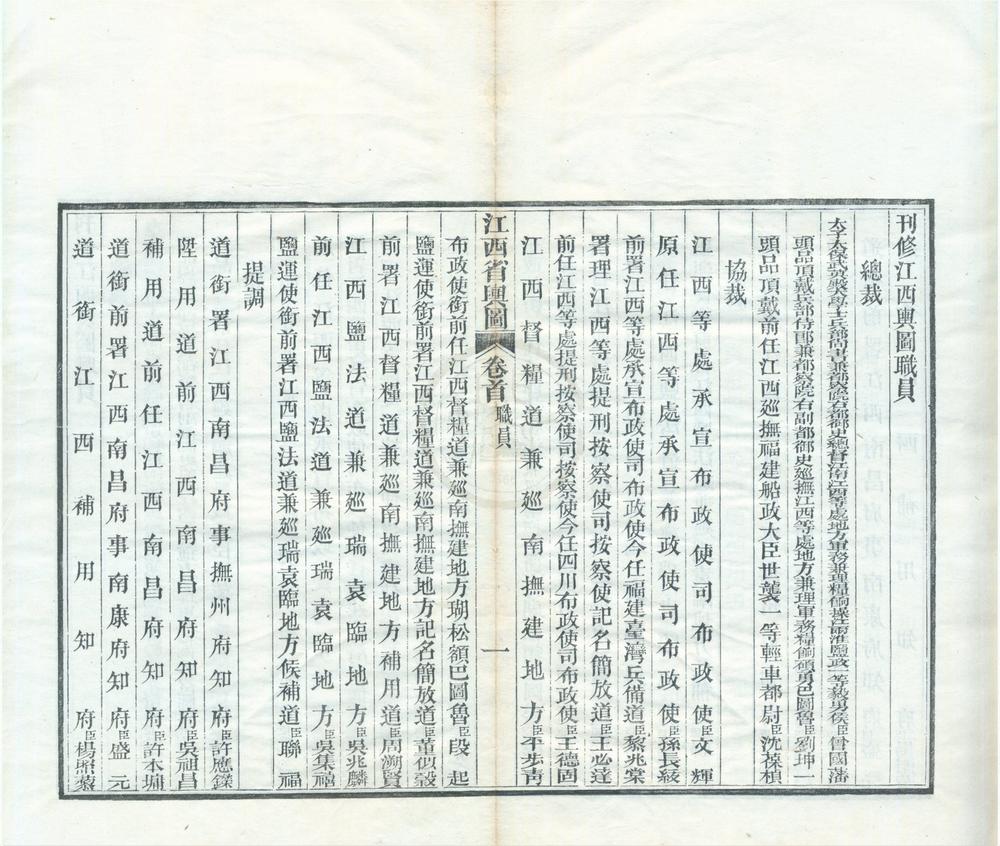 刊修江西輿圖職員
總裁
太子太保武英殿大學士兵部尚書兼都察院右都御史總督江南江西等處地方軍務兼理糧餉操江兩淮鹽政一等毅勇侯臣曾國藩
頭品頂戴兵部侍郎兼都察院右副都御史巡撫江西等處地方兼理軍務糧餉碩勇巴圖魯臣劉坤一
頭品頂戴前任江西巡撫福建船政大臣世襲一等輕車都尉臣沈葆楨
協裁
江西等處承宣布政使司布政使臣文輝
原任江西等處承宣布政使司布政使臣孫長紱
前署江西等處承宣布政使司布政使今任福建臺灣兵備道臣黎兆棠
署理江西等處提刑按察使司按察使記名簡放道臣王必達
前任江西等處提刑按察使司按察使今任四川布政使司布政使臣王德固
江西督糧道兼巡南撫建地方臣李步青
江西省輿圖 卷首 職員 一
布政使銜前任江西督糧道兼巡南撫建地方瑚松額巴圖魯臣段起
鹽運使銜前署江西督糧道兼巡南撫建地方記名簡放道臣董似穀
前署江西督糧道兼巡南撫建地方補用道臣周溯賢
江西鹽法道兼巡瑞袁臨地方臣吳兆麟
前任江西鹽法道兼巡瑞袁臨地方臣吳集禧
鹽運使銜前署江西鹽法道兼巡瑞袁臨地方候補道臣聯福
提調
道銜署江西南昌府事撫州府知府臣許應鑅
陞用道前江西南昌府知府臣吳祖昌
補用道前任江西南昌府知府臣許本墉
道銜前署江西南昌府事南康府知府臣盛元
道銜江西補用知府臣楊照藜